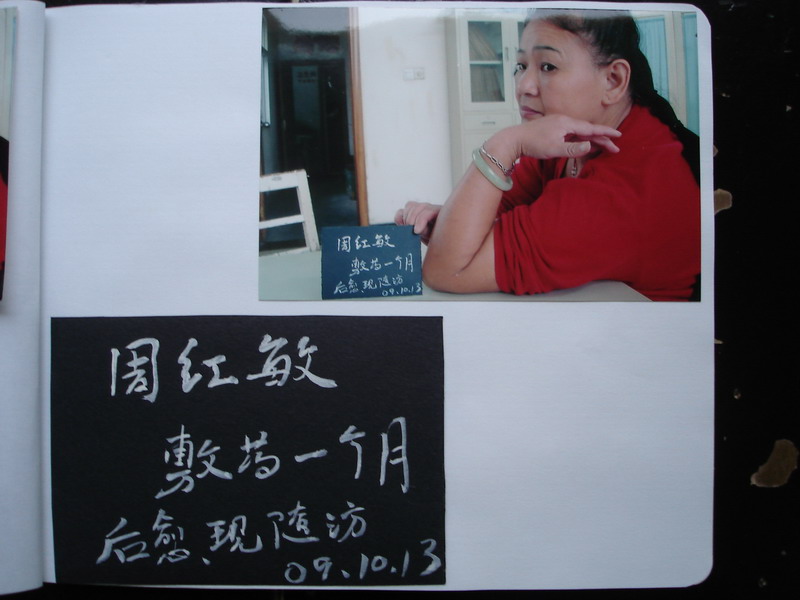 周红敏
敷药一个月
后愈、现随访
09.10.13
周红敏
敷药一个月
后愈、现随访
09.10.13